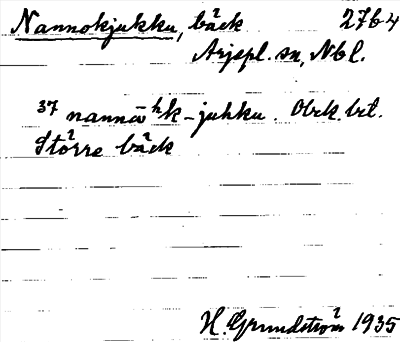 Nannokjukku, bäck 27b4
Arjspl. sn, Nbl.
37 nannåhk-juhku. Obek. bet.
Större bäck
H. Grundström 1935